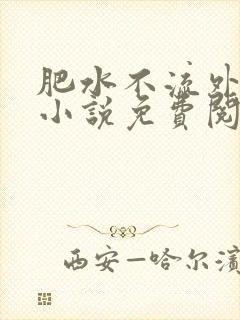 肥水不流外
小説免費閱
西安—哈尔滨